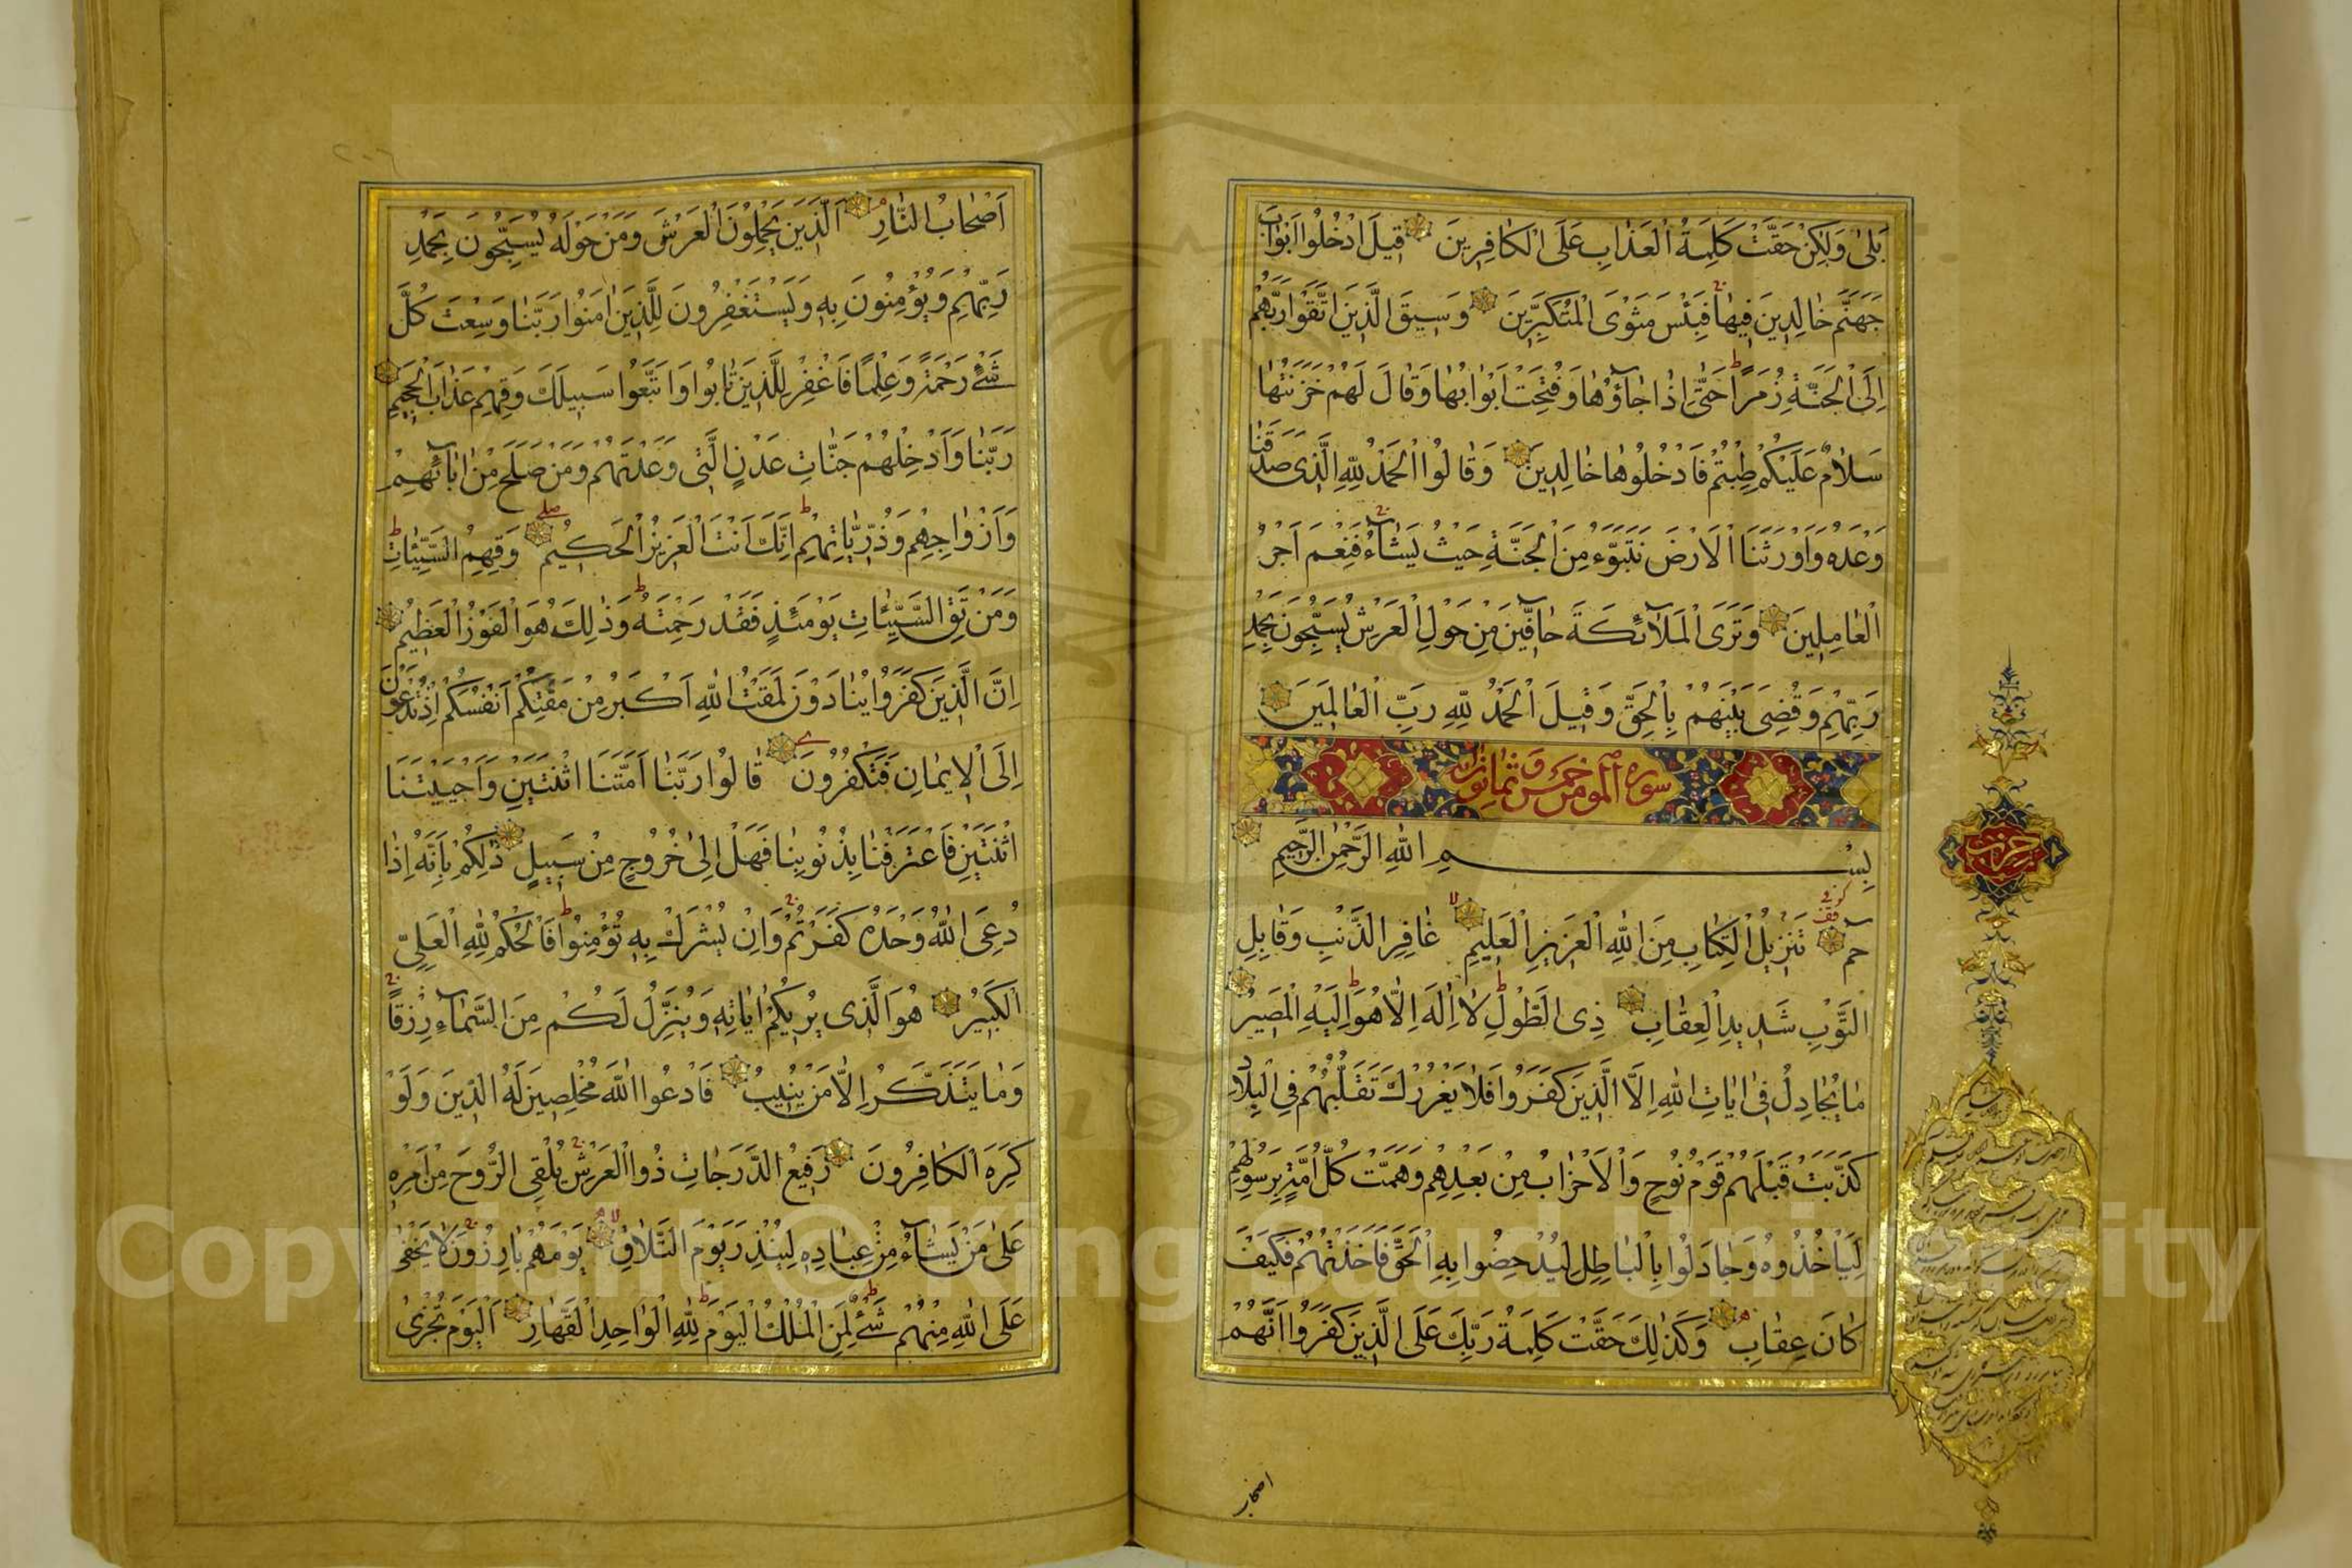 بَلىٰ وَلٰكِنْ حَقَّتْ كَلِمَةُ الْعَذٰابِ عَلَى الْكٰافِرِينَ قِيلَ ادْخُلُوا اَبْوٰابَ
جَهَنَّمَ خٰالِدِينَ فِيهٰا فَبِئْسَ مَثْوَى الْمُتَكَبِّرِينَ وَسِيقَ الَّذِينَ اتَّقَوْا رَبَّهُمْ
اِلَى الْجَنَّةِ زُمَرًا حَتّٰى اِذٰا جٰآؤُهٰا وَفُتِحَتْ اَبْوٰابُهٰا وَقٰالَ لَهُمْ خَزَنَتُهٰا
سَلاٰمٌ عَلَيْكُمْ طِبْتُمْ فَادْخُلُوهٰا خٰالِدِينَ وَقٰالُوا الْحَمْدُ لِلّٰهِ الَّذِى صَدَقَنٰا
وَعْدَهُ وَاَوْرَثَنَا الْاَرْضَ نَتَبَوَّءُ مِنَ الْجَنَّةِ حَيْثُ نَشٰآءُ فَنِعْمَ اَجْرُ
الْعٰامِلِينَ وَتَرَى الْمَلآئِكَةَ حٰآفِّينَ مِنْ حَوْلِ الْعَرْشِ يُسَبِّحُونَ بِحَمْدِ
رَبِّهِمْ وَقُضِىَ بَيْنَهُمْ بِالْحَقِّ وَقِيلَ الْحَمْدُ لِلّٰهِ رَبِّ الْعٰالَمِينَ
سورة المؤمن خمس و ثمانون
بِسْمِ اللّٰهِ الرَّحْمٰنِ الرَّحِيمِ
حٰم تَنْزِيلُ الْكِتٰابِ مِنَ اللّٰهِ الْعَزِيزِ الْعَلِيمِ غٰافِرِ الذَّنْبِ وَقٰابِلِ
التَّوْبِ شَدِيدِ الْعِقٰابِ ذِى الطَّوْلِ لاٰ اِلٰهَ اِلّٰا هُوَ اِلَيْهِ الْمَصِيرُ
مٰا يُجٰادِلُ فِى اٰيٰاتِ اللّٰهِ اِلَّا الَّذِينَ كَفَرُوا فَلاٰ يَغْرُرْكَ تَقَلُّبُهُمْ فِى الْبِلاٰدِ
كَذَّبَتْ قَبْلَهُمْ قَوْمُ نُوحٍ وَالْاَحْزٰابُ مِنْ بَعْدِهِمْ وَهَمَّتْ كُلُّ اُمَّةٍ بِرَسُولِهِمْ
لِيَاْخُذُوهُ وَجٰادَلُوا بِالْبٰاطِلِ لِيُدْحِضُوا بِهِ الْحَقَّ فَاَخَذْتُهُمْ فَكَيْفَ
كٰانَ عِقٰابِ وَكَذٰلِكَ حَقَّتْ كَلِمَةُ رَبِّكَ عَلَى الَّذِينَ كَفَرُوا اَنَّهُمْ
اصحاب
حزب
اَصْحٰابُ النّٰارِ اَلَّذِينَ يَحْمِلُونَ الْعَرْشَ وَمَنْ حَوْلَهُ يُسَبِّحُونَ بِحَمْدِ
رَبِّهِمْ وَيُؤْمِنُونَ بِهِ وَيَسْتَغْفِرُونَ لِلَّذِينَ اٰمَنُوا رَبَّنٰا وَسِعْتَ كُلَّ
شَىْءٍ رَحْمَةً وَعِلْمًا فَاغْفِرْ لِلَّذِينَ تٰابُوا وَاتَّبَعُوا سَبِيلَكَ وَقِهِمْ عَذٰابَ الْجَحِيمِ
رَبَّنٰا وَاَدْخِلْهُمْ جَنّٰاتِ عَدْنٍ الَّتِى وَعَدْتَهُمْ وَمَنْ صَلَحَ مِنْ اٰبٰآئِهِمْ
وَاَزْوٰاجِهِمْ وَذُرِّيّٰاتِهِمْ اِنَّكَ اَنْتَ الْعَزِيزُ الْحَكِيمُ وَقِهِمُ السَّيِّئٰاتِ
وَمَنْ تَقِ السَّيِّئٰاتِ يَوْمَئِذٍ فَقَدْ رَحِمْتَهُ وَذٰلِكَ هُوَ الْفَوْزُ الْعَظِيمُ
اِنَّ الَّذِينَ كَفَرُوا يُنٰادَوْنَ لَمَقْتُ اللّٰهِ اَكْبَرُ مِنْ مَقْتِكُمْ اَنْفُسَكُمْ اِذْ تُدْعَوْنَ
اِلَى الْاِيمٰانِ فَتَكْفُرُونَ قٰالُوا رَبَّنٰا اَمَتَّنَا اثْنَتَيْنِ وَاَحْيَيْتَنَا
اثْنَتَيْنِ فَاعْتَرَفْنٰا بِذُنُوبِنٰا فَهَلْ اِلىٰ خُرُوجٍ مِنْ سَبِيلٍ ذٰلِكُمْ بِاَنَّهُ اِذٰا
دُعِىَ اللّٰهُ وَحْدَهُ كَفَرْتُمْ وَاِنْ يُشْرَكْ بِهِ تُؤْمِنُوا فَالْحُكْمُ لِلّٰهِ الْعَلِىِّ
الْكَبِيرِ هُوَ الَّذِى يُرِيكُمْ اٰيٰاتِهِ وَيُنَزِّلُ لَكُمْ مِنَ السَّمٰآءِ رِزْقًا
وَمٰا يَتَذَكَّرُ اِلّٰا مَنْ يُنِيبُ فَادْعُوا اللّٰهَ مُخْلِصِينَ لَهُ الدِّينَ وَلَوْ
كَرِهَ الْكٰافِرُونَ رَفِيعُ الدَّرَجٰاتِ ذُوا الْعَرْشِ يُلْقِى الرُّوحَ مِنْ اَمْرِهِ
عَلىٰ مَنْ يَشٰآءُ مِنْ عِبٰادِهِ لِيُنْذِرَ يَوْمَ التَّلاٰقِ يَوْمَ هُمْ بٰارِزُونَ لاٰ يَخْفىٰ
عَلَى اللّٰهِ مِنْهُمْ شَىْءٌ لِمَنِ الْمُلْكُ الْيَوْمَ لِلّٰهِ الْوٰاحِدِ الْقَهّٰارِ اَلْيَوْمَ تُجْزىٰ
Copyright © King Saud University